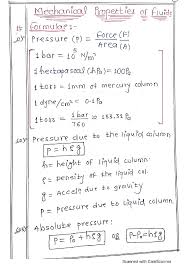 Mechanical Properties of Fluids
# Formulas :-
Pressure (P) = Force (F) / Area (A)
1 bar = 10⁵ N/m²
1 hectopascal (hPa) = 100 Pa
1 torr = 1mm of mercury column
1 dyne/cm² = 0.1 Pa
1 torr = 1 bar / 760 to 133.31 Pa
Pressure due to the liquid column
P = hρg
h = height of liquid column
ρ = density of the liquid
g = Accelⁿ due to gravity
P = pressure due to liquid column
Absolute pressure:
P = P₀ + hρg or P-P₀ = hρg
Scanned with CamScanner